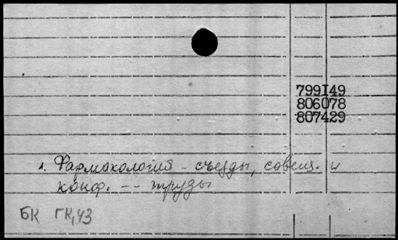 799I49
806078
807429
1. Фармакология - съезды, совещ. и
конф. -- труды
БК ГК,43